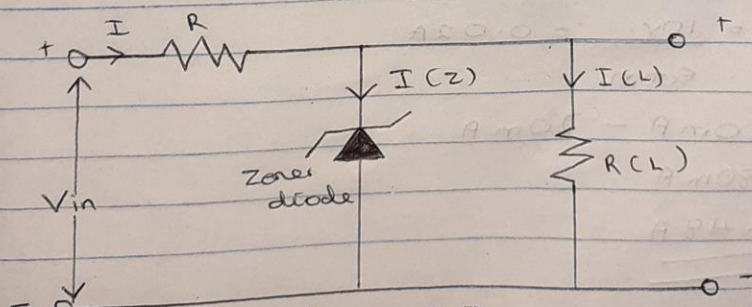 I R
+ +
I(Z) I(L)
R(L)
Zener
diode
Vin
-